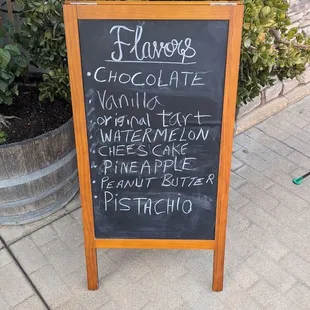 Flavors
• CHOCOLATE
• Vanilla
• original tart
• WATERMELON
• CHEESCAKE
• PINEAPPLE
• PEANUT BUTTER
• PISTACHIO